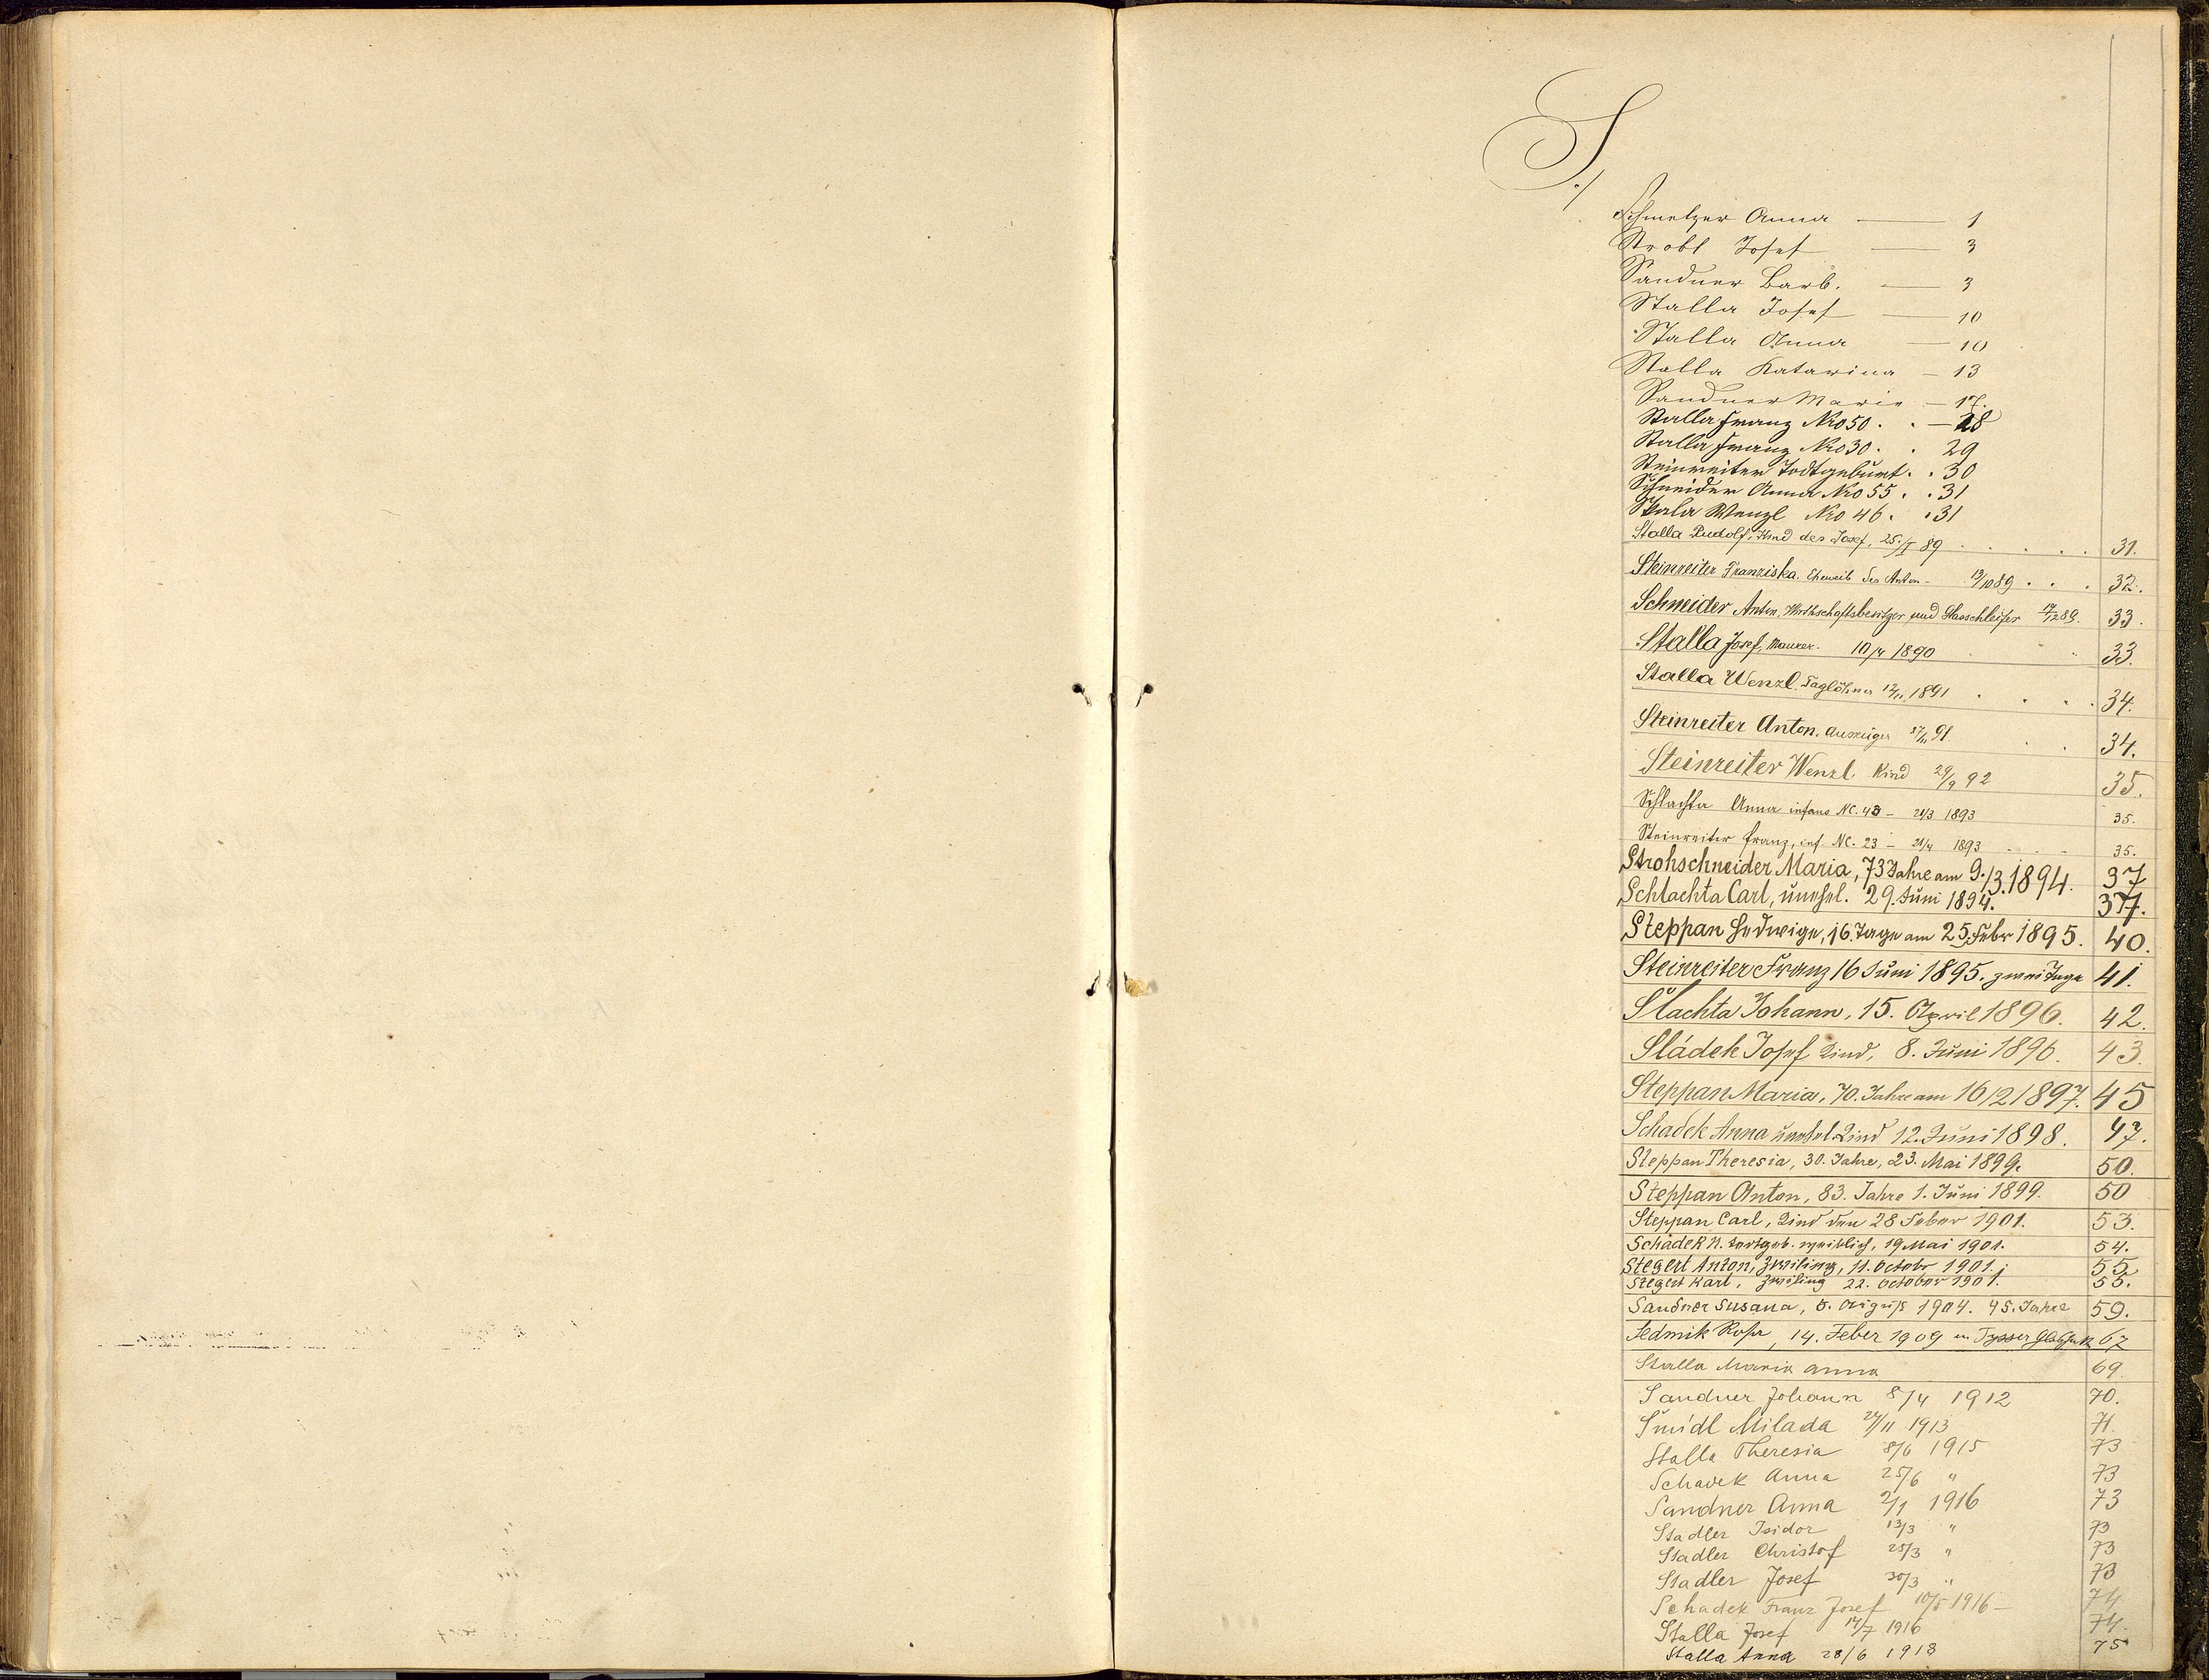 S./
Schmelzer Anna — 1
Strobl Josef — 3
Sandner Barb. — 3
Stalla Josef — 10
Stalla Anna — 10
Stalla Katarina — 13
Sandner Marie — 17.
Stalla Franz Nro 50. . — 28
Stalla Franz Nro 30. . 29
Steinreiter Todtgeburt. . 30
Schneider Anna Nro 55. . 31
Skala Wenzl Nro 46. . 31
Stalla Rudolf, Kind des Josef, 25./I 89 . . . . . 31.
Steinreiter Franziska. Eheweib des Anton - 13/10 89 . . . 32.
Schneider Anton, Wirthschaftsbesitzer und Glasschleifer 17/12 89. 33.
Stalla Josef, Maurer. 10/4 1890 33.
Stalla Wenzl, Taglöhner 1891 . . . . 34.
Steinreiter Anton. Auszüger 27/11 91 . . 34.
Steinreiter Wenzl Kind 29/9 92 35.
Schlachta Anna infans NC. 43 - 21/3 1893 35.
Steinreiter Franz, inf. NC. 23 - 21/4 1893 35.
Strohschneider Maria, 73 Jahre am 9./3. 1894. 37
Schlachta Carl, unehel. 29. Juni 1894. 37.
Steppan Hedwige, 16. Tage am 25. Febr 1895. 40.
Steinreiter Franz 16 Juni 1895. zwei Tage 41.
Slachta Johann, 15. April 1896. 42.
Sládek Josef Kind, 8. Juni 1896. 43.
Steppan Maria, 70. Jahre am 16/2 1897. 45
Schadek Anna unehel. Kind 12. Juni 1898. 47.
Steppan Theresia, 30. Jahre, 23. Mai 1899. 50.
Steppan Anton, 83. Jahre 1. Juni 1899. 50
Steppan Carl, Kind den 28 Feber 1901. 53.
Schadek N. todtgeb. weiblich, 19 Mai 1901. 54.
Stegert Anton, Zwiling, 11. Octobr 1901. 55
Stegert Karl, Zwiling 22. October 1901. 55.
Sandner Susana, 5. August 1904. 45. Jahre 59.
Sedmik Rosa, 14. Feber 1909 in 67
Stalla Maria Anna 69.
Sandner Johann 8/4 1912 70.
Šmídl Milada 24/11 1913 71.
Stalla Theresia 8/6 1915 73
Schadek Anna 25/6 " 73
Sandner Anna 2/1 1916 73
Stadler Isidor 13/3 " 73
Stadler Christof 25/3 " 73
Stadler Josef 30/3 " 73
Schadek Franz Josef 10/5 1916 - 74
Stalla Josef 14/7 1916 74.
Stalla Anna 28/6 1918 75